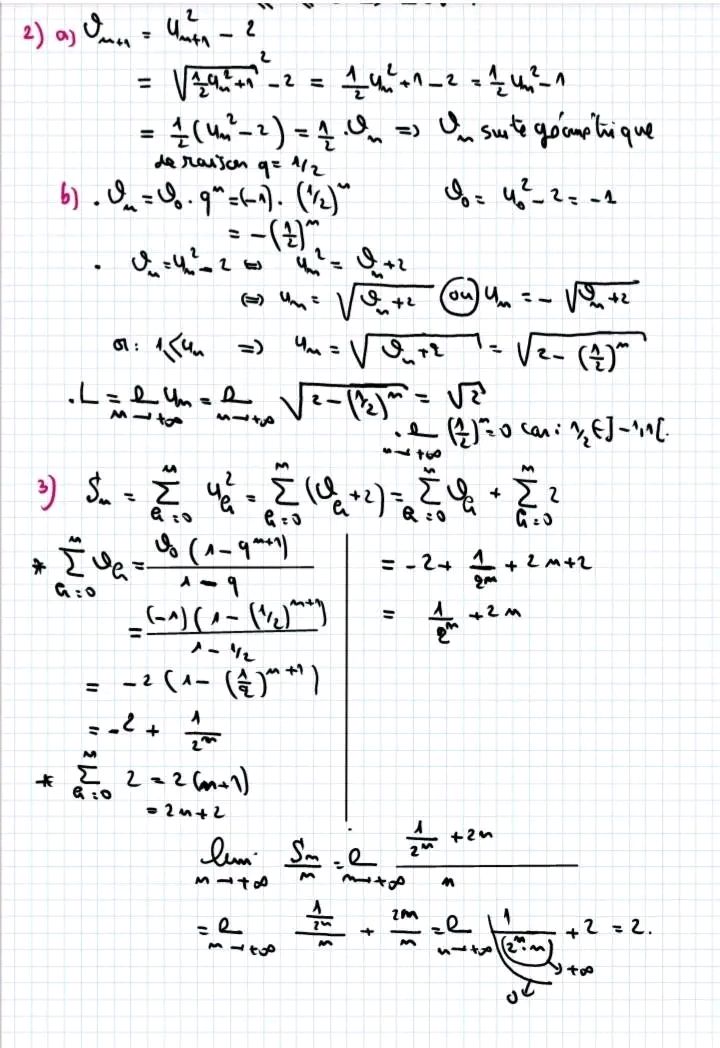 2) a) ϑₙ₊₁ = u²ₙ₊₁ - 2
= √(½uₙ²+1)² - 2 = ½uₙ² + 1 - 2 = ½uₙ² - 1
= ½(uₙ² - 2) = ½.ϑₙ => ϑₙ suite géométrique
de raison q = 1/2
b) . ϑₙ = ϑ₀ . qⁿ = (-1) . (1/2)ⁿ ϑ₀ = u₀² - 2 = -1
= -(1/2)ⁿ
. ϑₙ = uₙ² - 2 ⇔ uₙ² = ϑₙ + 2
⇔ uₙ = √(ϑₙ + 2) ou uₙ = - √(ϑₙ + 2)
or : 1 ≤ uₙ => uₙ = √(ϑₙ + 2) = √(2 - (1/2)ⁿ)
. L = ℓ uₙ = ℓ √(2 - (1/2)ⁿ) = √2
n→+∞ n→+∞
. ℓ (1/2)ⁿ = 0 car : 1/2 ∈ ]-1,1[.
n→+∞
3) Sₙ = Σⁿₖ₌₀ uₖ² = Σⁿₖ₌₀ (ϑₖ + 2) = Σⁿₖ₌₀ ϑₖ + Σⁿₖ₌₀ 2
* Σⁿₖ₌₀ ϑₖ = ϑ₀ (1 - qⁿ⁺¹) / (1 - q)
= (-1)(1 - (1/2)ⁿ⁺¹) / (1 - 1/2)
= -2 (1 - (1/2)ⁿ⁺¹)
= -2 + 1/2ⁿ
* Σⁿₖ₌₀ 2 = 2(n+1)
= 2n+2
= -2 + 1/2ⁿ + 2n + 2
= 1/2ⁿ + 2n
lim Sₙ/n = ℓ (1/2ⁿ + 2n) / n
n→+∞ n→+∞
= ℓ (1/2ⁿ)/n + 2n/n = ℓ 1/(2ⁿ.n) + 2 = 2.
n→+∞ n→+∞
→+∞
0